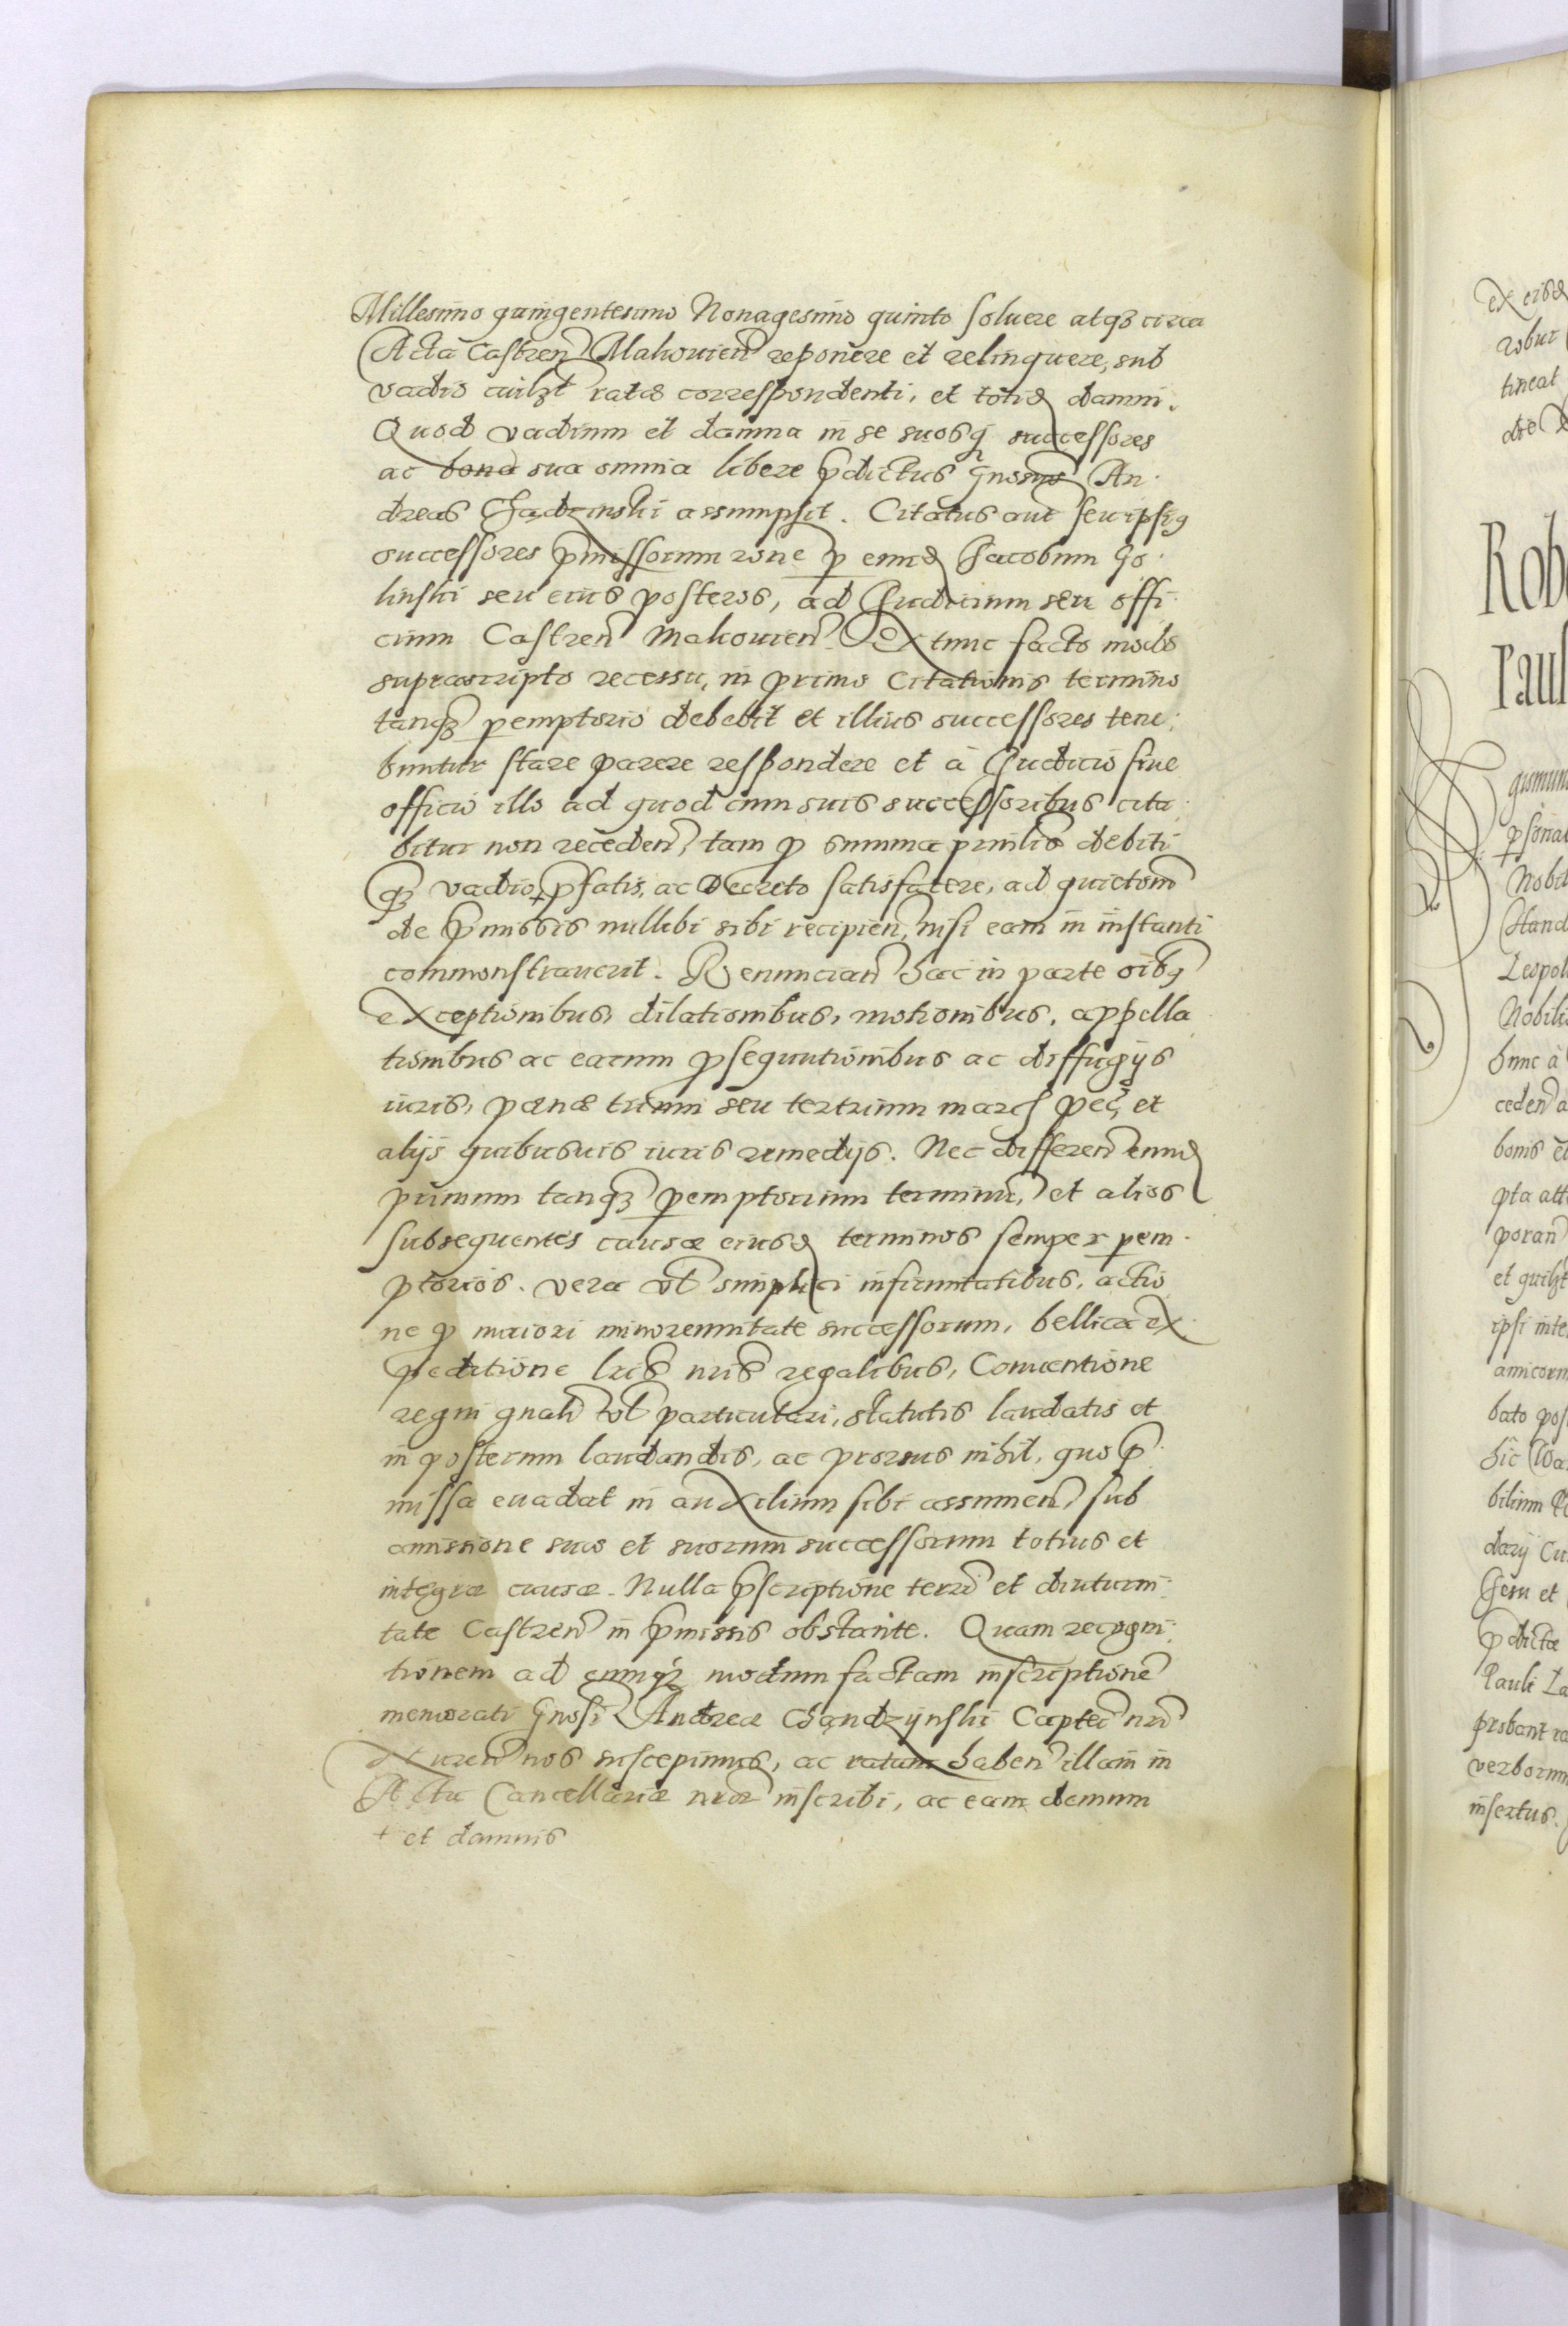 Millesimo quingentesimo Nonagesimo quinto soluere atqȝ circa
Acta Castren̄ Makouien̄ reponere et relinquere, sub
vadio cuilȝt ratæ correspondenti, et totid damni.
Quod vadium et damna in se suosqȝ successores
ac bona sua omnia libere p̄dictus Gnosus An-
dreas Chądzinski assumpsit. Citatus aut̄ seu ipsiꝯ
successores p̄missorum rōne ꝑ eund Jacobum Go-
linski seu eius posteros, ad Judicium seu offi-
cium Castren̄ Makouien̄. Extunc facto modo
suprascripto recessu, in primo Citationis termino
tanqȝ ꝑemptorio debebit et illius successores tene-
buntur stare parere respondere et à Judicio siue
officio illo ad quod cum suis successoribus cita-
bitur non receden̄, tam ꝓ summa p̄nlis debiti
qȝ vadio + p̄fatis, ac Decreto satisfacere, ad quictom̄
de p̄missis nullibi sibi recipien̄, nisi eam in instanti
commonstrauerit. Renuncian̄ hac in parte oibꝯ
exceptionibus, dilationibus, motionibus, appella-
tionibus ac earum ꝓsequutionibus ac diffugijs
iuris, pœnæ trium seu tertium marc̄ pec̄, et
alijs quibusuis iuris remedijs. Nec differen̄ eund
primum tanqȝ ꝑemptorium terminū, et alios
subsequentes causæ eiusd terminos semper pem-
ptorios. vera vl̄ simplici infirmitatibus, actio-
ne ꝓ maiori minorennitate successorum, bellica ex-
peditione lrīs nrīs regalibus, Conuentione
regni gnali vl̄ particulari, statutis laudatis et
in posterum laudandis, ac prorsus nihil, quo p̄-
missa euadat in auxilium sibi assumen̄, sub
amissione suæ et suorum successorum totius et
integræ causæ. Nulla p̄scriptione terrē et diuturni-
tate Castren̄ in p̄missis obstante. Quam recogni-
tionem ad eumqȝ modum factam inscriptionē
memorati Gnosi Andreæ Chądzÿnski Captei nrī
nos suscepimus, ac ratam haben̄ illam in
Acta Cancellariæ nræ inscribi, ac eam demum
+ et damnis
ex eisd
robur
tineat
die
Rob
Paul
gismun
Nobil
Stand
Leopol
Nobili
hunc à
ceden̄ a
bonis
pta att
poran̄
et quilȝt
ipsi inte
amicorum
bato pos
hic Wa
bilium
darij Cu
Jesu et
p̄dictæ
Pauli La
probant ra
verborum
insertus.